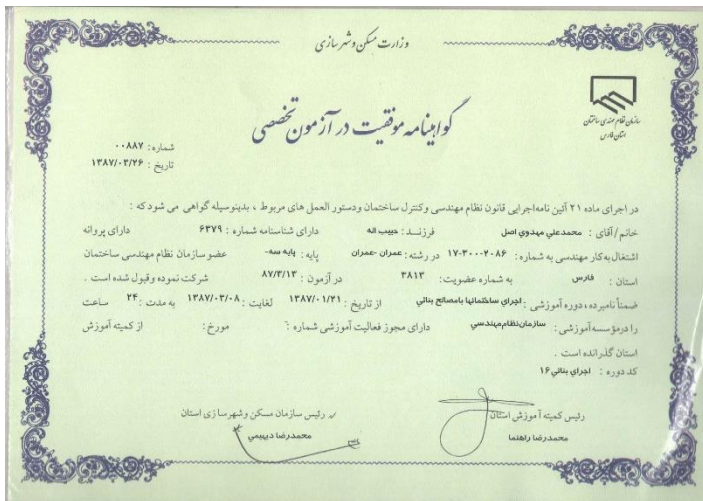 وزارت مسکن و شهرسازی
سازمان نظام مهندسی ساختمان
استان فارس
گواهینامه موفقیت در آزمون تخصصی
شماره : ۰۰۸۸۷
تاریخ : ۱۳۸۷/۰۳/۲۶
در اجرای ماده ۲۱ آئین نامه اجرایی قانون نظام مهندسی وکنترل ساختمان ودستور العمل های مربوط ، بدینوسیله گواهی می شود که :
خانم / آقای : محمدعلي مهدوي اصل فرزنـد : حبیب اله دارای شناسنامه شماره : ۶۳۷۹ دارای پروانه
اشتغال به کار مهندسی به شماره : ۲۰۸۶-۳۰۰-۱۷ در رشته : عمران -عمران پایه : پایه سه- عضو سازمان نظام مهندسی ساختمان
استان : فارس به شماره عضویت : ۳۸۱۳ در آزمون : ۸۷/۳/۱۳ شرکت نموده وقبول شده است .
ضمناً نامبرده ، دوره آموزشی : اجراي ساختمانها بامصالح بنائي از تاریخ : ۱۳۸۷/۰۱/۲۱ لغایت : ۱۳۸۷/۰۳/۰۸ به مدت : ۲۴ ساعت
را درمؤسسه آموزشی : سازمان نظام مهندسي دارای مجوز فعالیت آموزشی شماره : مورخ : از کمیته آموزش
استان گذرانده است .
کد دوره : اجراي بنائي ۱۶
رئیس کمیته آموزش استان
محمدرضا راهنما
رئیس سازمان مسکن وشهرسازی استان
محمدرضا دبیبمي